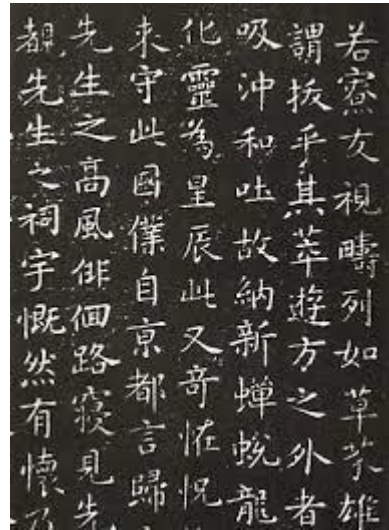 若寮友視疇列如草芥雄
謂拔乎其萃遊方之外者
吸沖和吐故納新蟬蛻龍
化靈為星辰此又奇恠怳
来守此國僕自京都言歸
先生之高風俳佪路寢見先
覩先生之祠宇慨然有懷乃